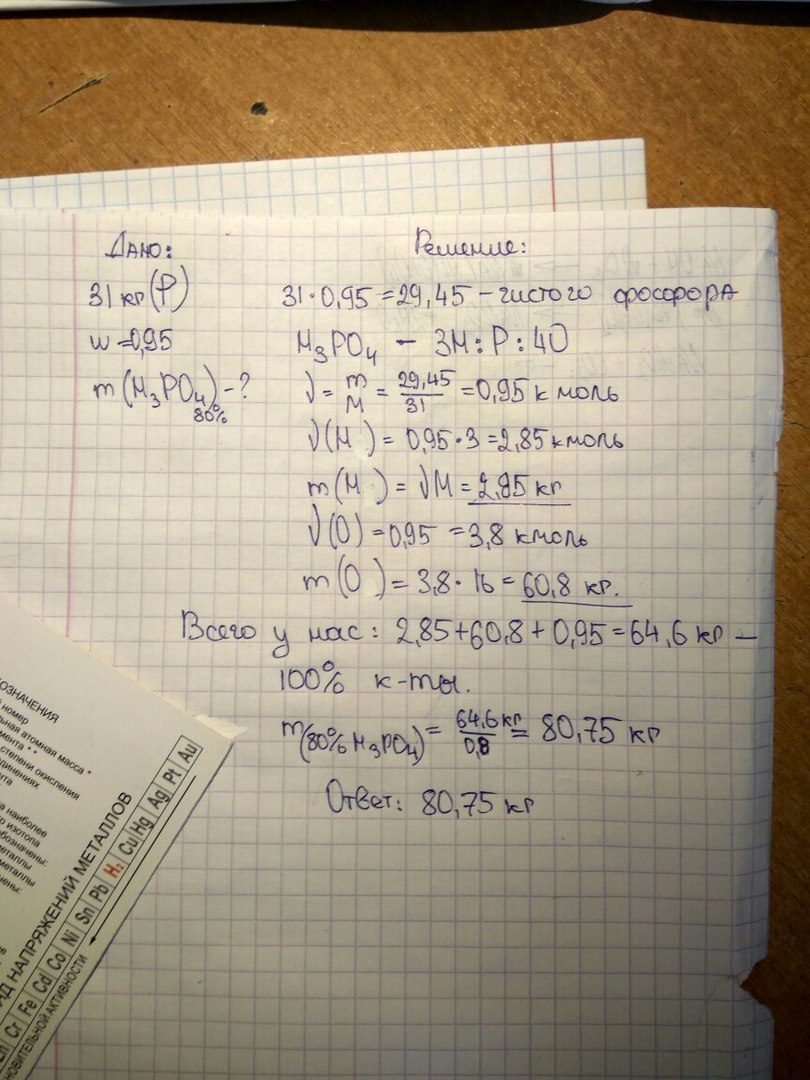 Дано:
31 кг (P)
w = 0,95
m(H₃PO₄)-?
80%
Решение:
31·0,95 = 29,45 – чистого фосфора
H₃PO₄ – 3H:P:4O
√ = m/M = 29,45/31 = 0,95 к моль
√(H) = 0,95·3 = 2,85 кмоль
m(H) = √M = 2,85 кг
√(O) = 0,95 = 3,8 кмоль
m(O) = 3,8·16 = 60,8 кг.
Всего у нас: 2,85+60,8+0,95 = 64,6 кг –
100% к-ты.
m(80% H₃PO₄) = 64,6 кг/0,8 = 80,75 кг
Ответ: 80,75 кг
ОЗНАЧЕНИЯ
номер
ьная атомная масса *
мента **
степени окисления
единениях
нта
а наиболее
о изотопа
обозначены:
металлы
металлы
чены:
АД НАПРЯЖЕНИЙ МЕТАЛЛОВ
Cr Fe Cd Co Ni Sn Pb H₂ Cu Hg Ag Pt Au
НОВИТЕЛЬНОЙ АКТИВНОСТИ